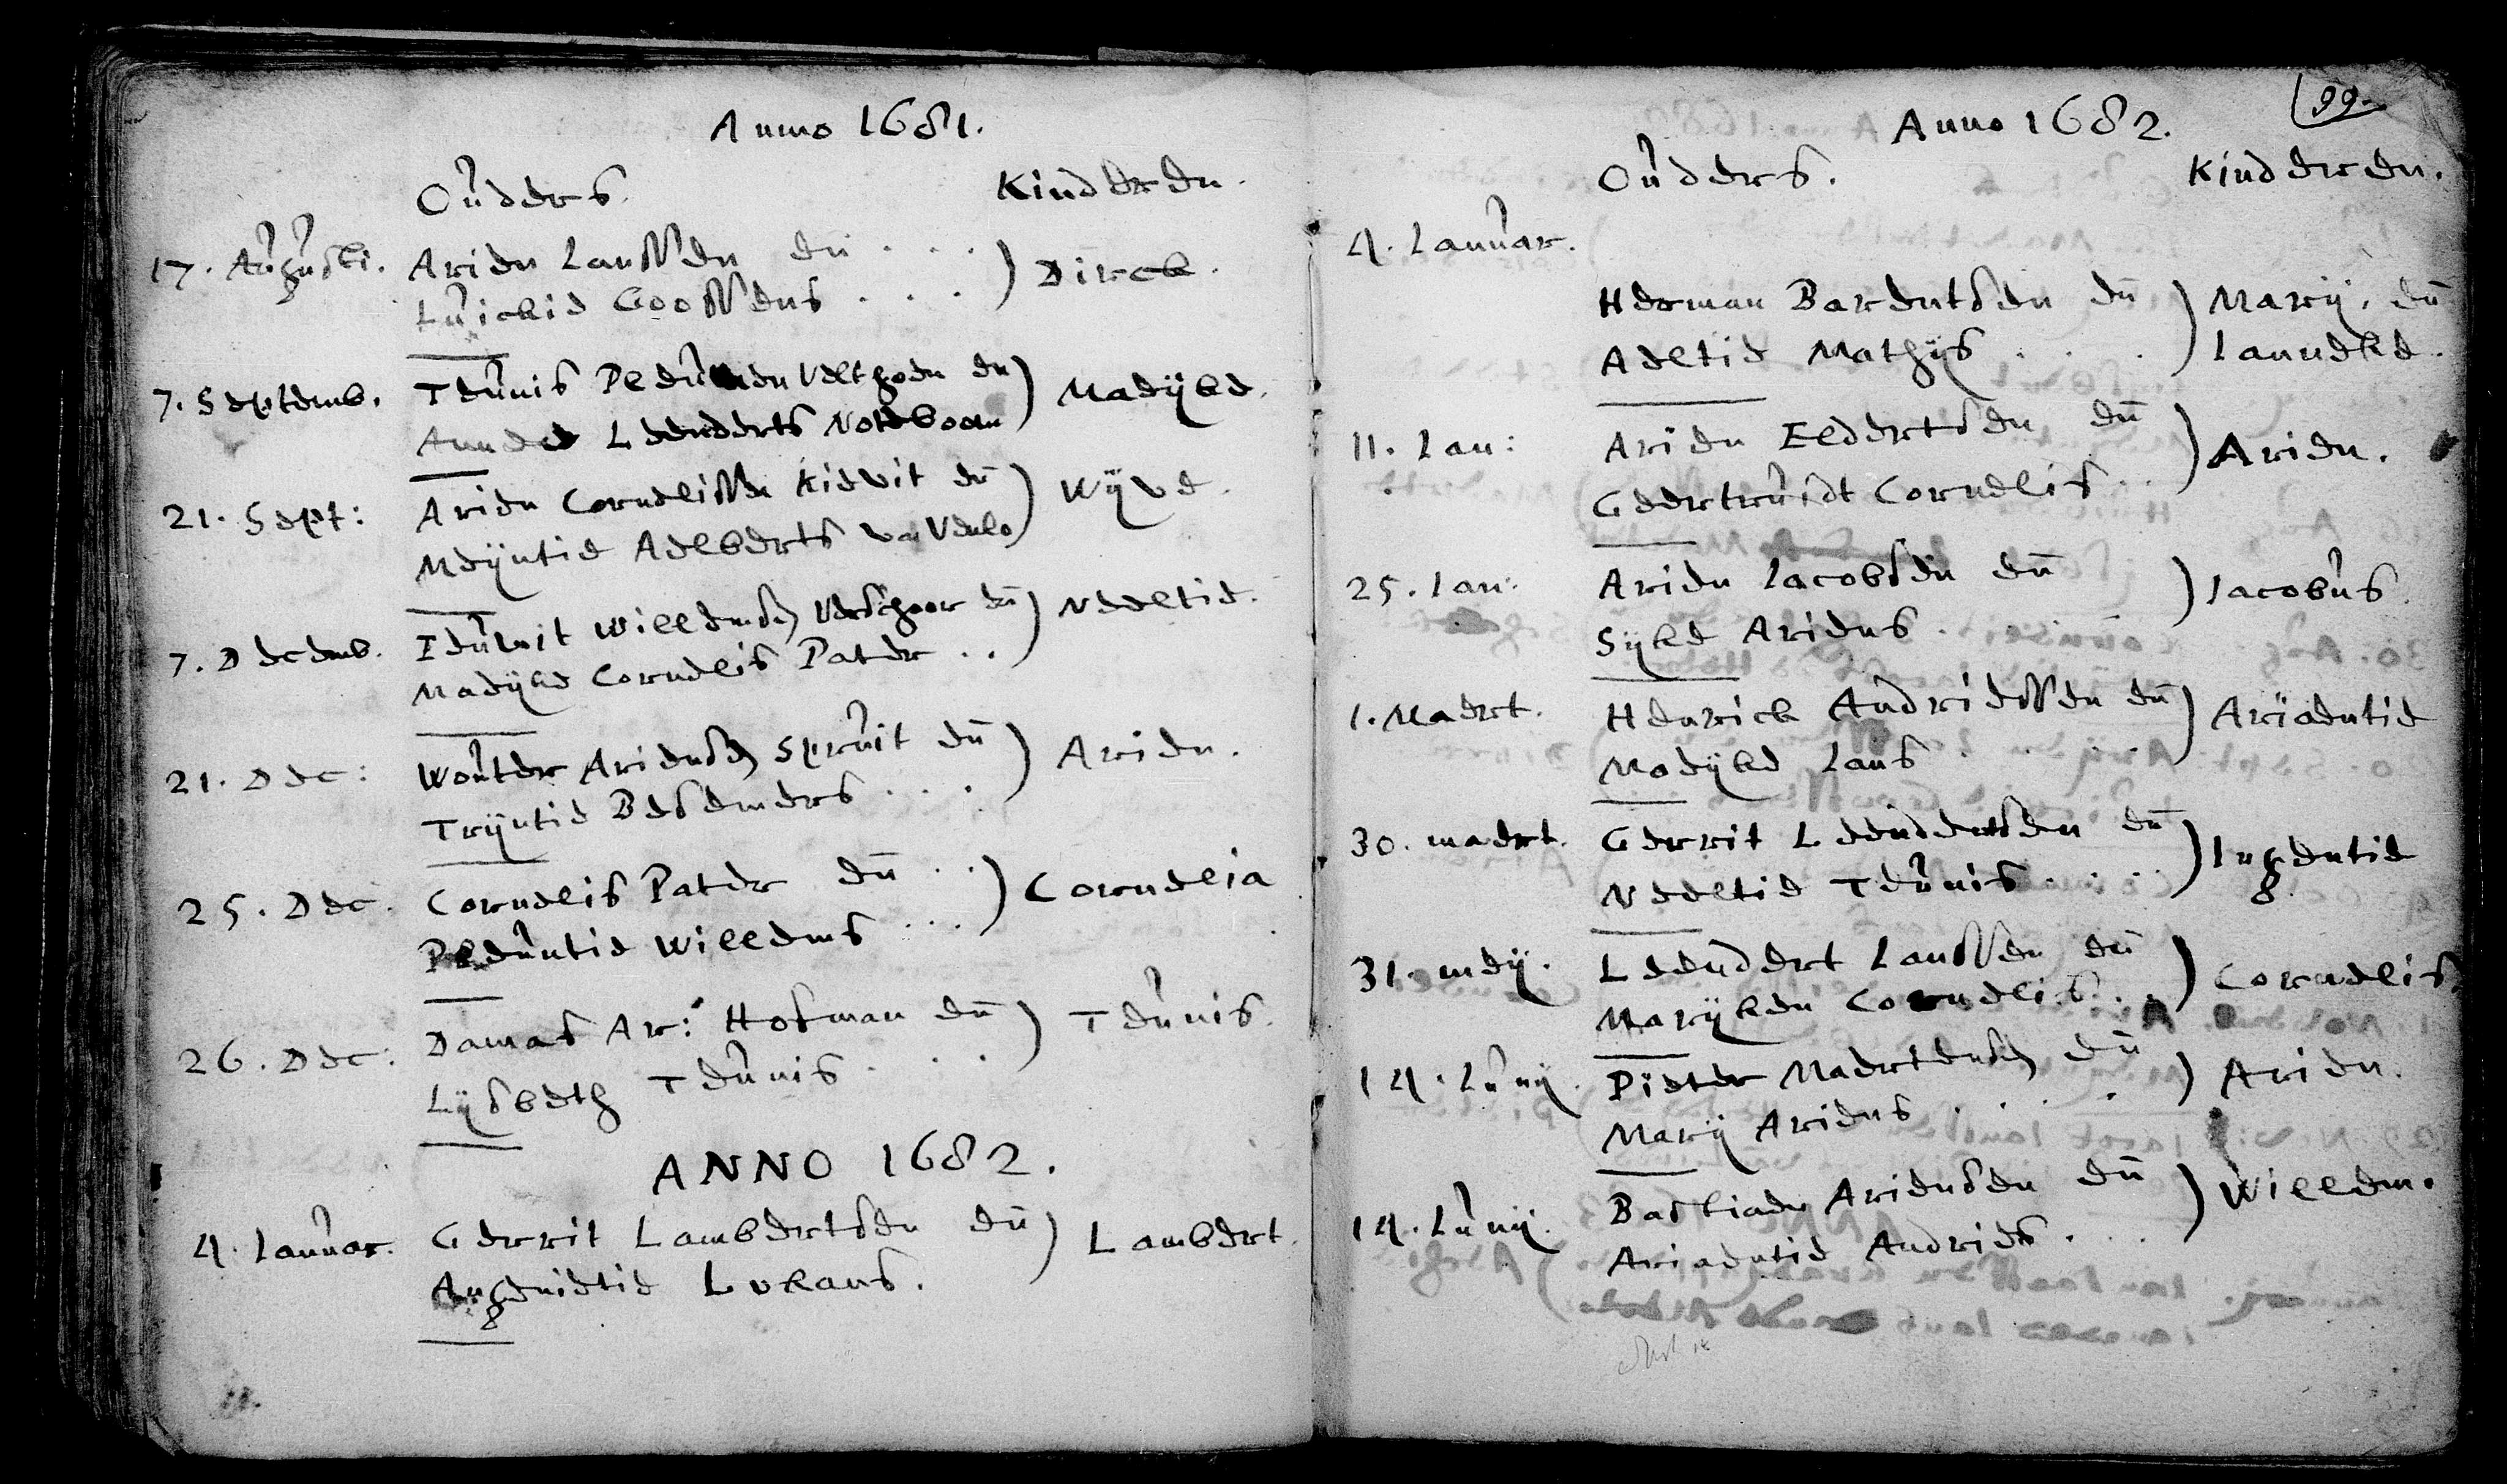 Anno 1681.
Ouders. Kinderen.
17. Augusti. Arien Janssen en . . . ) Dirck.
Luickie Goossens . . .
7. Septemb. Teunis Pleunen Velthoen en ) Maeijke.
Leenderts Noteboom
21. Sept: Arien Cornelisse Kievit en ) Wijve.
Meijntie Aelberts van Venlo
7. Decemb. Teunit Willemsz Verschoor en ) Neeltie.
Maeijke Cornelis Pater . .
21. Dec: Wouter Ariensz Spruit en ) Arien.
Trijntie Besemers . . .
25. Dec. Cornelis Pater en . . ) Cornelia
Pleuntie Willems . . .
26. Dec: Damas Ar: Hofman en ) Teunis.
Lijsbeth Teunis . . .
ANNO 1682.
4. Januar. Gerrit Lambertsen en ) Lambert.
Angenietie Lukans.
99.
Anno 1682.
Ouders. Kinderen.
4. Januar.
Herman Barentsen en ) Marij, en
Aeltie Mathijs . . . Janneke.
11. Jan: Arien Eldertsen en ) Arien.
Geertruidt Cornelis . .
25. Jan: Arien Jacobsen en ) Jacobus.
Sijke Ariens . . .
1. Maert. Henrick Andriessen en ) Arijaentie
Maeijke Jans . . . .
30. maert. Gerrit Leendertsen en ) Ingentie
Neeltie Teunis . . . .
31. meij. Leendert Janssen en ) Cornelis.
Marijken Cornelis . .
14. Junij. Pieter Maertensz en ) Arien.
Marij Ariens . . . .
14. Junij. Bastiaen Ariensen en ) Willem.
Ariaentie Andries . . .